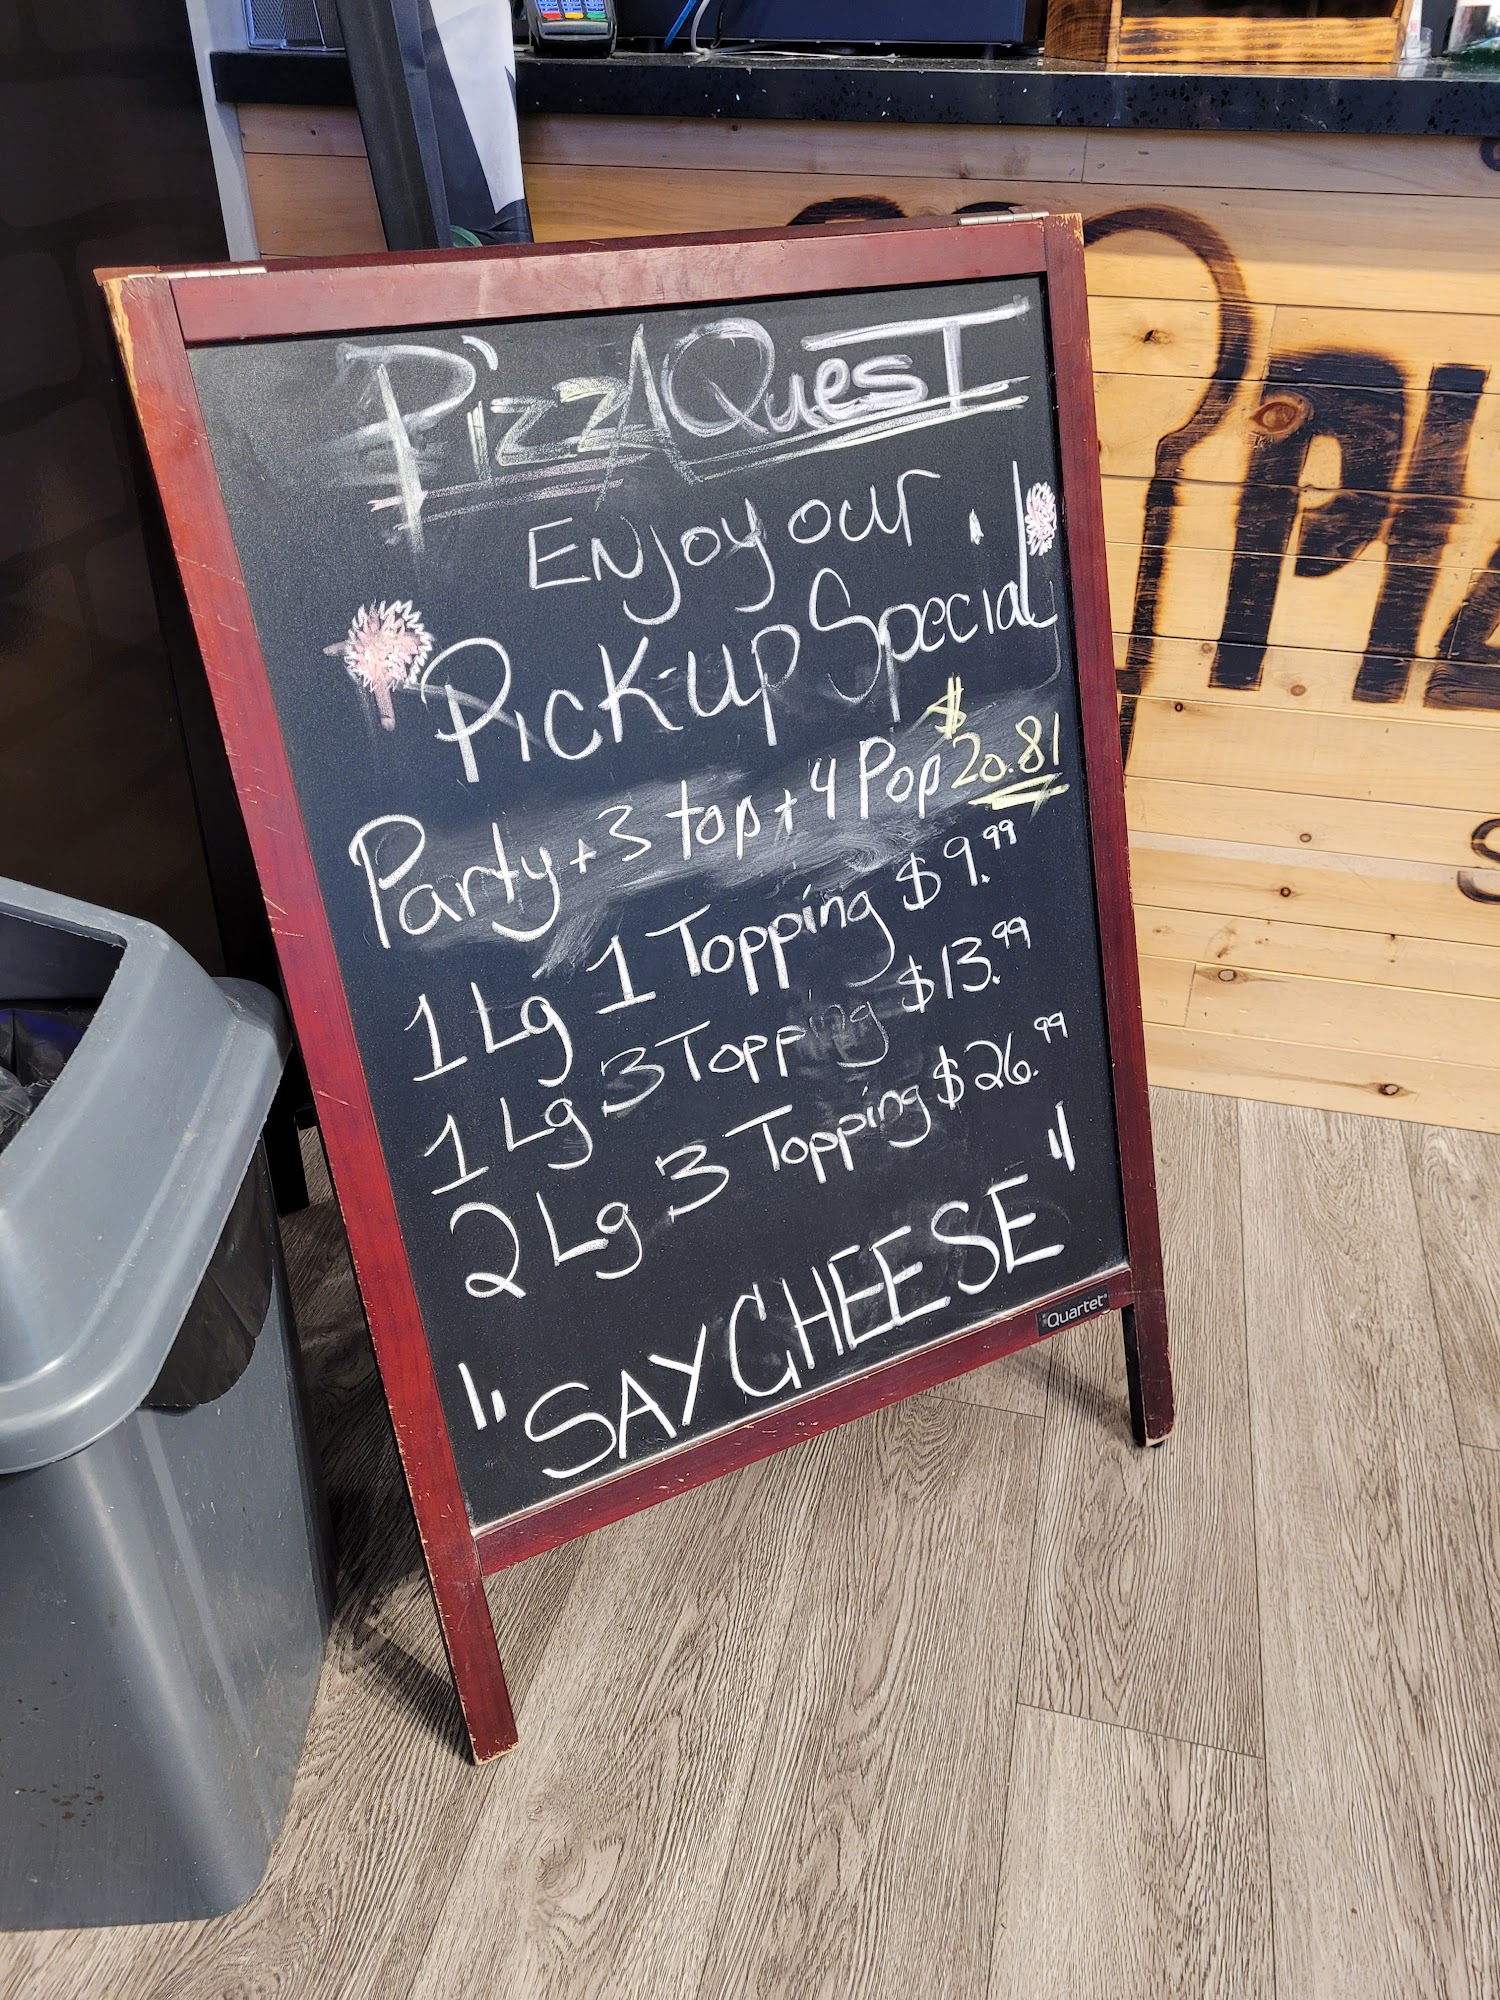 PizzAQuesT
ENjoy our
Pick-up Special
Party + 3 top + 4 Pop $20.81
1 Lg 1 Topping $9.99
1 Lg 3 Topping $13.99
2 Lg 3 Topping $26.99
"SAY CHEESE"
Quartet